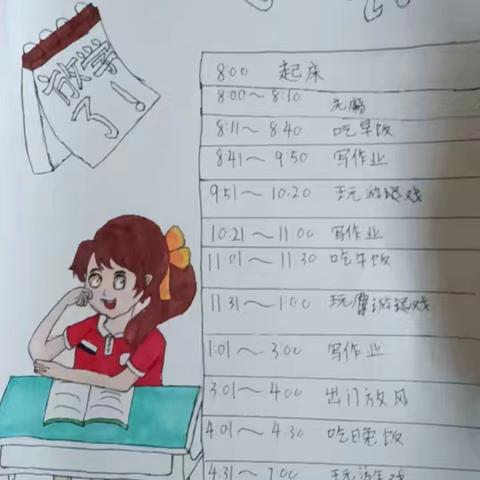 放学
了!
8:00 起床
8:00~8:10 洗脸
8:11~8:40 吃早饭
8:41~9:50 写作业
9:51~10:20 玩游戏
10:21~11:00 写作业
11:01~11:30 吃午饭
11:31~1:00 玩游戏
1:01~3:00 写作业
3:01~4:00 出门放风
4:01~4:30 吃晚饭
4:31~7:00 玩游戏